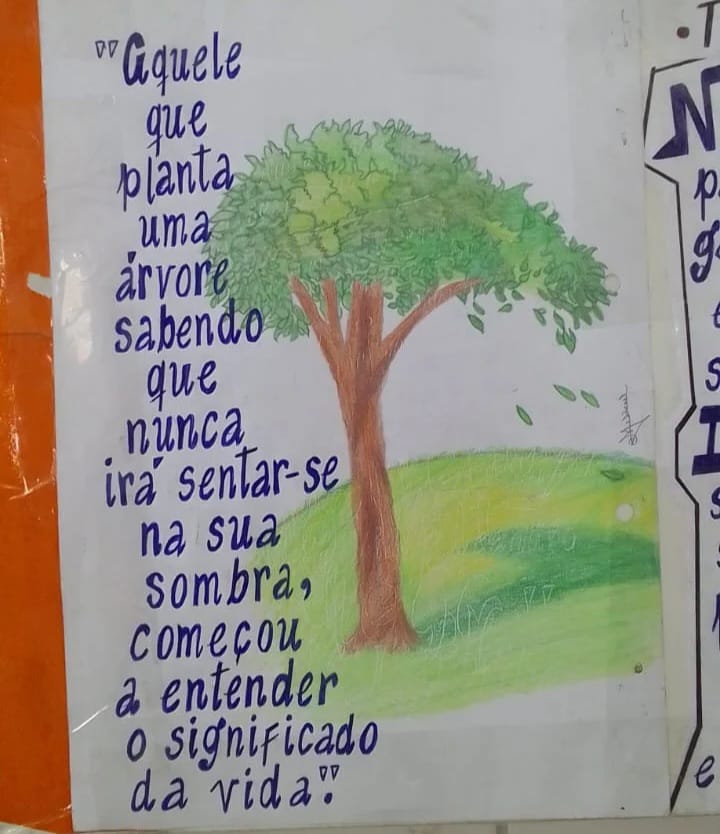 "Aquele
que
planta
uma
árvore
sabendo
que
nunca
irá sentar-se
na sua
sombra,
começou
a entender
o significado
da vida".